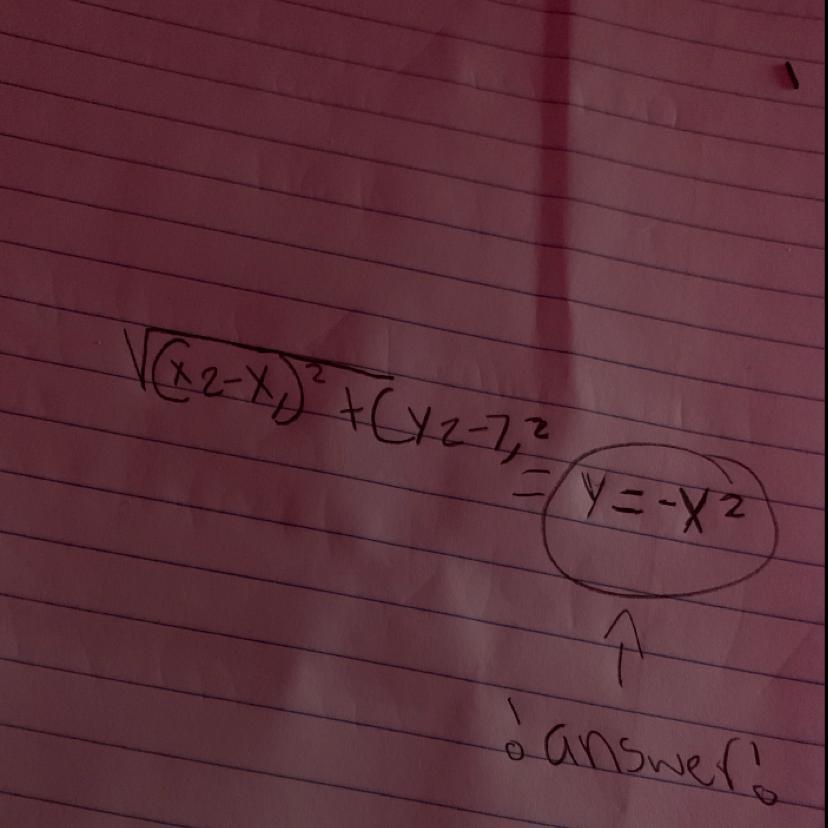 √(x2-x₁)² +(y2-7,²
= y=-x²
↑
¡answer!